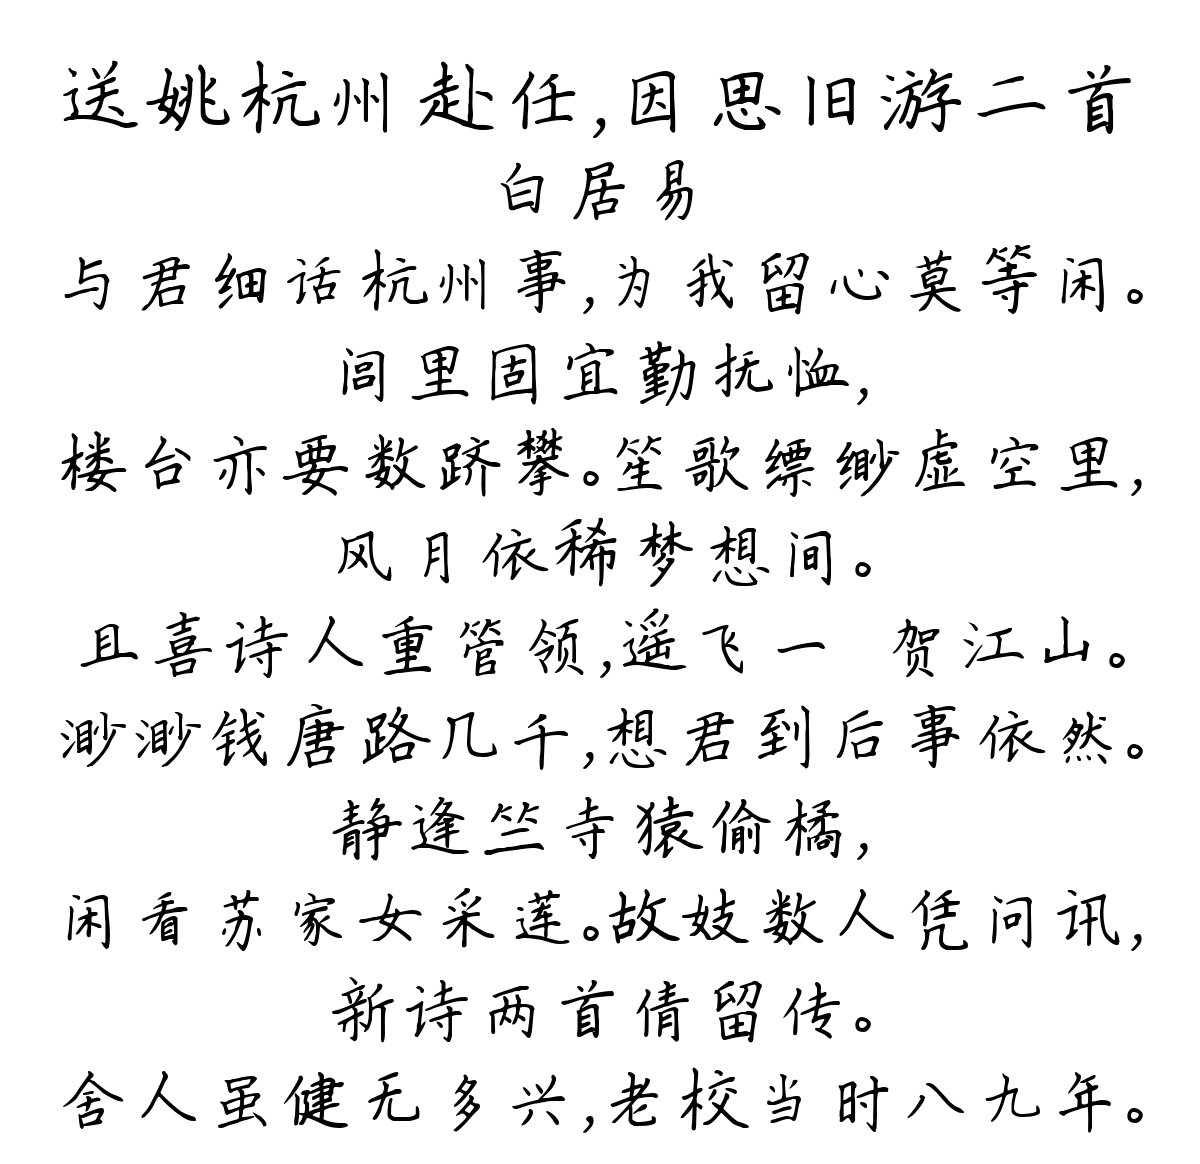 送姚杭州赴任,因思旧游二首
白居易
与君细话杭州事,为我留心莫等闲。
闾里固宜勤抚恤,
楼台亦要数跻攀。笙歌缥缈虚空里,
风月依稀梦想间。
且喜诗人重管领,遥飞一 贺江山。
渺渺钱唐路几千,想君到后事依然。
静逢竺寺猿偷橘,
闲看苏家女采莲。故妓数人凭问讯,
新诗两首倩留传。
舍人虽健无多兴,老校当时八九年。